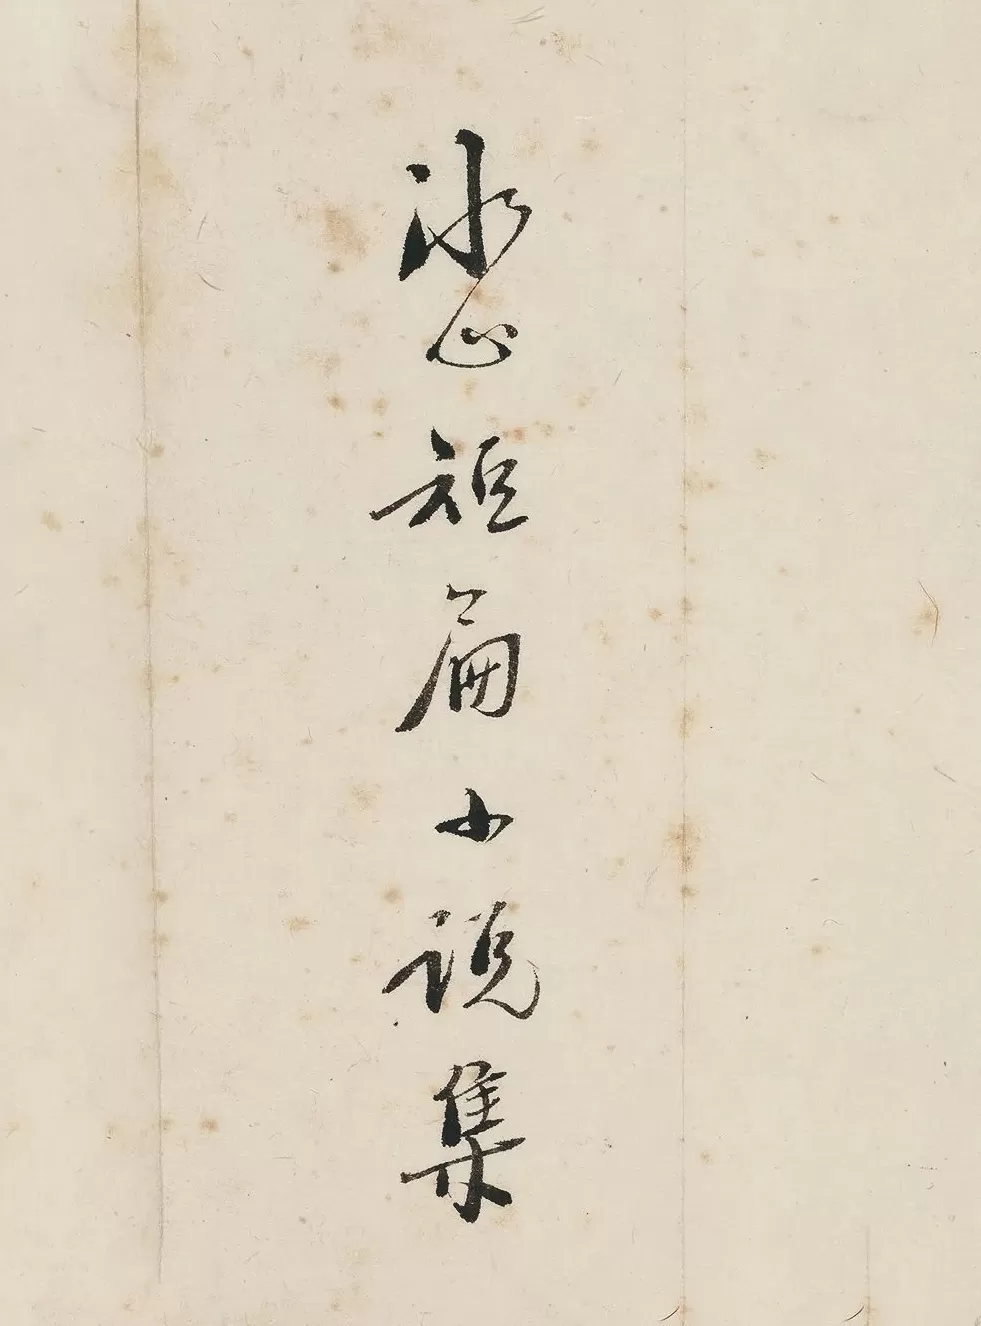 冰心短篇小说集